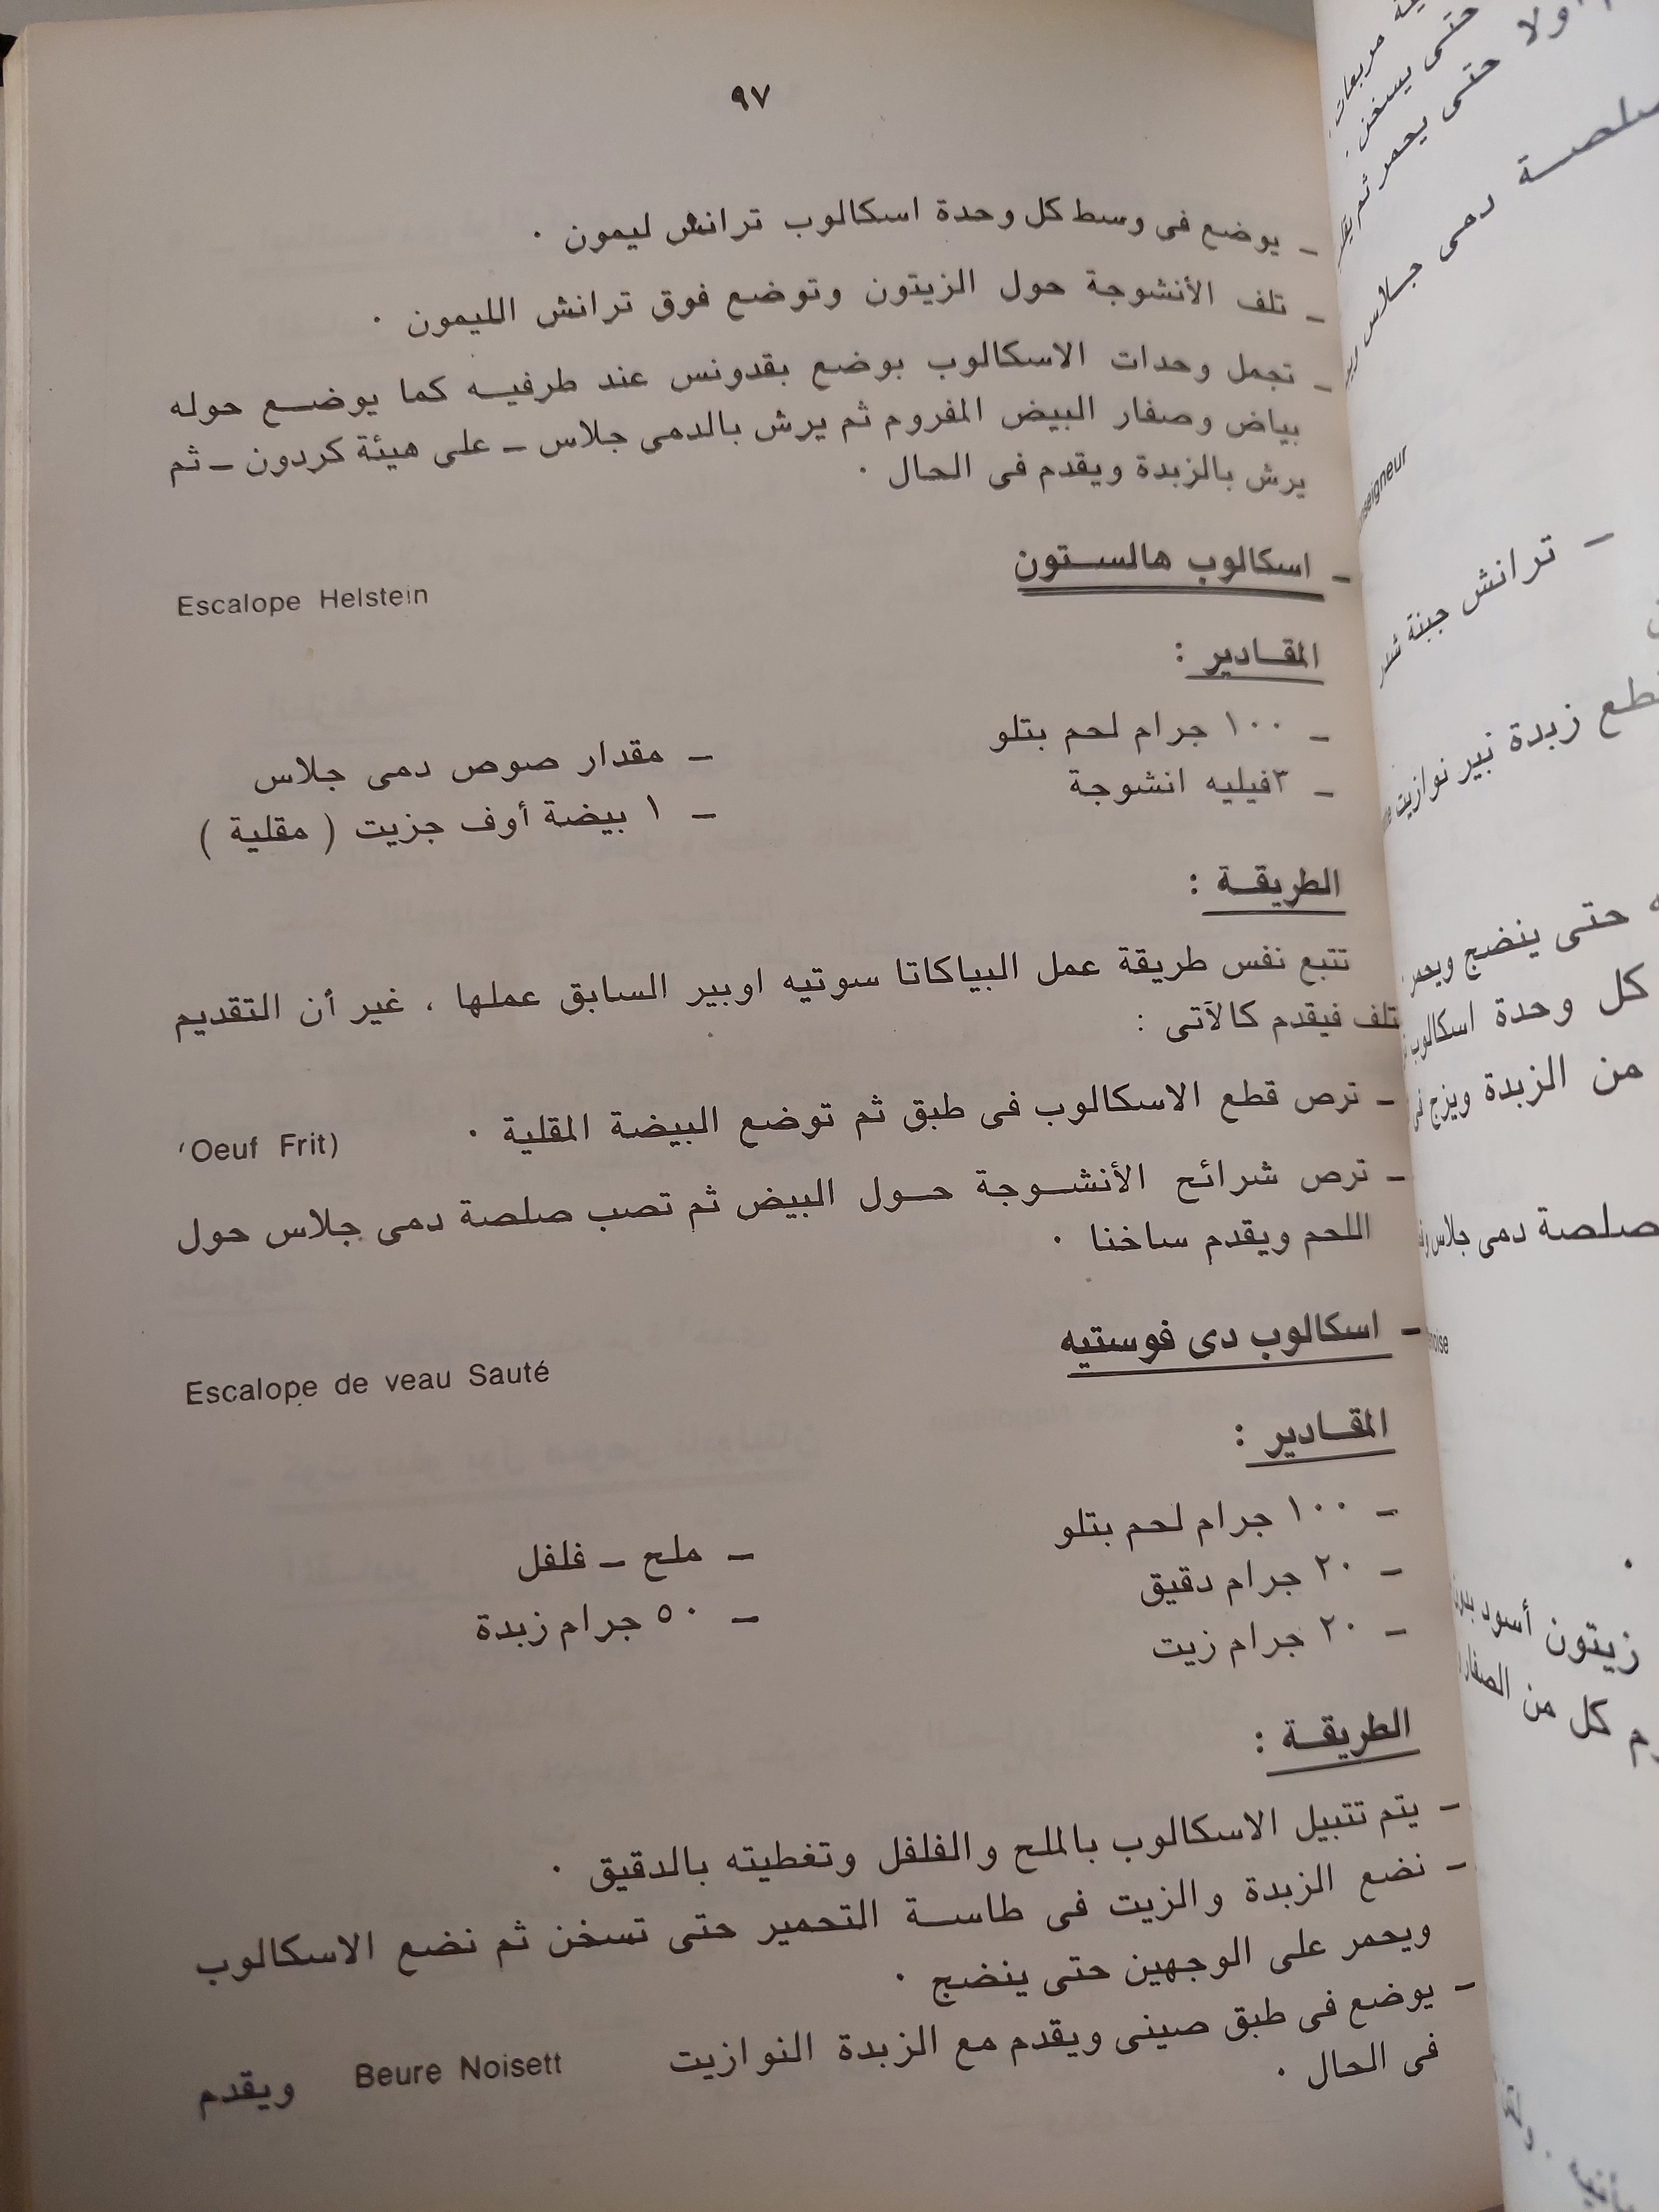 ٩٧
ـ يوضع فى وسط كل وحدة اسكالوب ترانش ليمون ٠
ـ تلف الأنشوجة حول الزيتون وتوضع فوق ترانش الليمون ٠
ـ تجمل وحدات الاسكالوب بوضع بقدونس عند طرفيه كما يوضع حوله
بياض وصفار البيض المفروم ثم يرش بالدمى جلاس ـ على هيئة كردون ـ ثم
يرش بالزبدة ويقدم فى الحال ٠
ـ اسكالوب هالستون
Escalope Helstein
المقادير :
ـ ١٠٠ جرام لحم بتلو
ـ مقدار صوص دمى جلاس
ـ ٣فيليه انشوجة
ـ ١ بيضة أوف جزيت ( مقلية )
الطريقة :
تتبع نفس طريقة عمل البياكاتا سوتيه اوبير السابق عملها ، غير أن التقديم
تلف فيقدم كالآتى :
ـ ترص قطع الاسكالوب فى طبق ثم توضع البيضة المقلية ٠ ‘Oeuf Frit)
ـ ترص شرائح الأنشوجة حول البيض ثم تصب صلصة دمى جلاس حول
اللحم ويقدم ساخنا ٠
ـ اسكالوب دى فوستيه
Escalope de veau Sauté
المقادير :
ـ ١٠٠ جرام لحم بتلو
ـ ملح ـ فلفل
ـ ٢٠ جرام دقيق
ـ ٥٠ جرام زبدة
ـ ٢٠ جرام زيت
الطريقة :
ـ يتم تتبيل الاسكالوب بالملح والفلفل وتغطيته بالدقيق ٠
ـ نضع الزبدة والزيت فى طاسة التحمير حتى تسخن ثم نضع الاسكالوب
ويحمر على الوجهين حتى ينضج ٠
ـ يوضع فى طبق صينى ويقدم مع الزبدة النوازيت Beure Noisett ويقدم
فى الحال ٠
مربعات
حتى يسخن
اولا حتى يحمر ثم
صلصة دمى جلاس
ـ ترانش جبنة
زبدة نبير نوازيت
حتى ينضج ويحمر
كل وحدة اسكالوب
من الزبدة ويزج
صلصة دمى جلاس
زيتون أسود
كل من الصفار